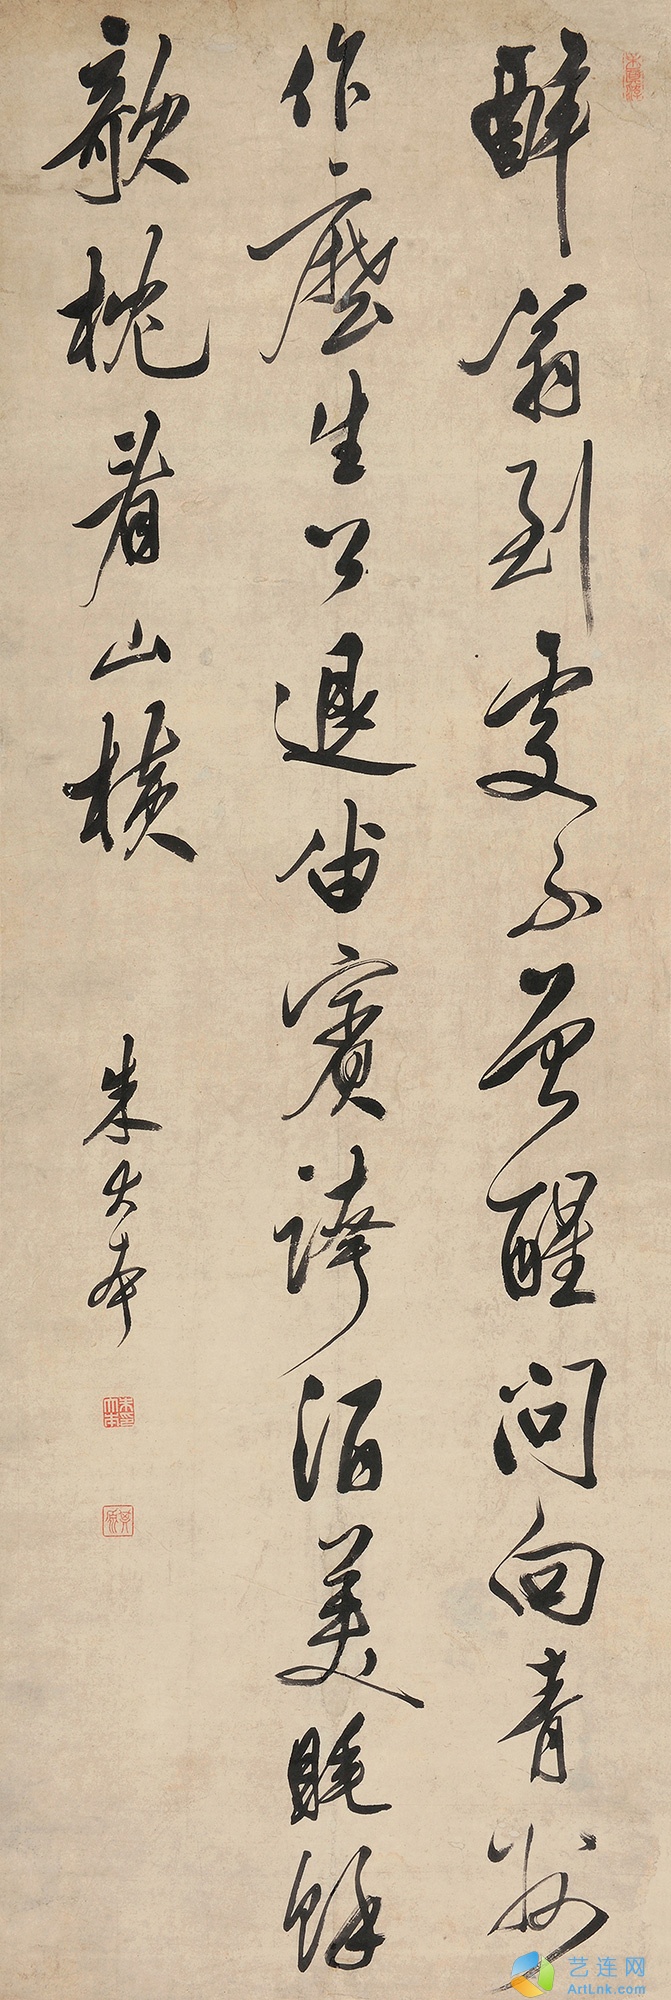 醉翁到處不曾醒問向青州
作麼生公退留賓誇酒美睡餘
欹枕看山橫
朱大年
艺连网
ArtLnk.com